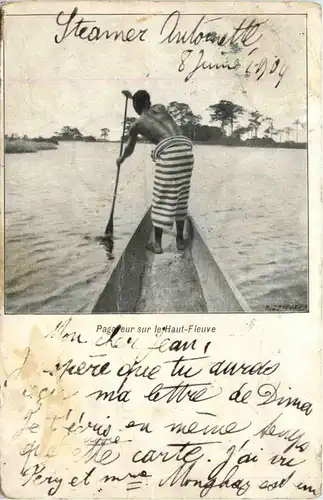 Steamer Antoinette
8 Juin 1909
Pagayeur sur le Haut-Fleuve
Mon cher Jean,
J'espère que tu auras
reçu ma lettre de Dima
Je t'écris en même temps
que cette carte. J'ai vu
Pery et mme Monghaz est un